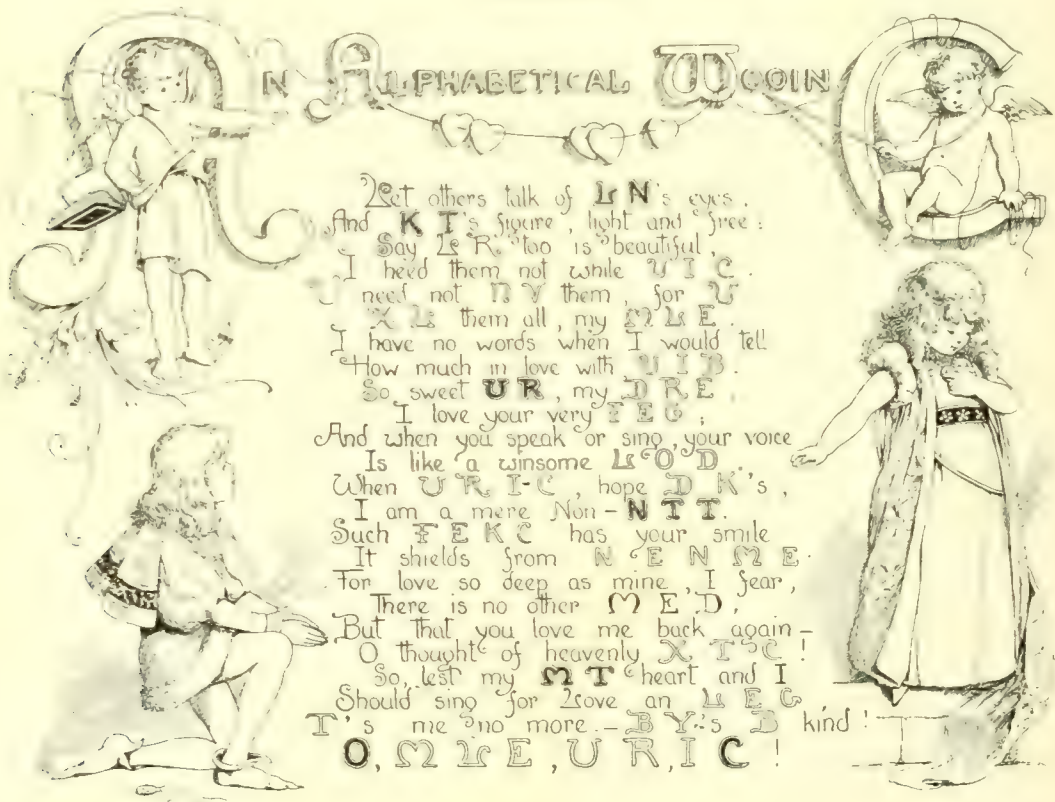 AN ALPHABETICAL WOOING
Let others talk of L N's eyes.
And K T's figure, light and free:
Say L R, too is beautiful,
I heed them not while U I C.
I need not N V them, for U
X L them all, my M L E.
I have no words when I would tell
How much in love with U I B.
So sweet U R, my D R E,
I love your very F E G;
And when you speak or sing, your voice
Is like a winsome L O D.
When U R I-C, hope D K's,
I am a mere Non-N T T.
Such F E K C has your smile
It shields from N E N M E.
For love so deep as mine, I fear,
There is no other M E D,
But that you love me back again –
O thought of heavenly X T C!
So, lest my M T heart and I
Should sing for love an L E G
T's me no more – B Y's B kind!
O, M L E, U R, I C!